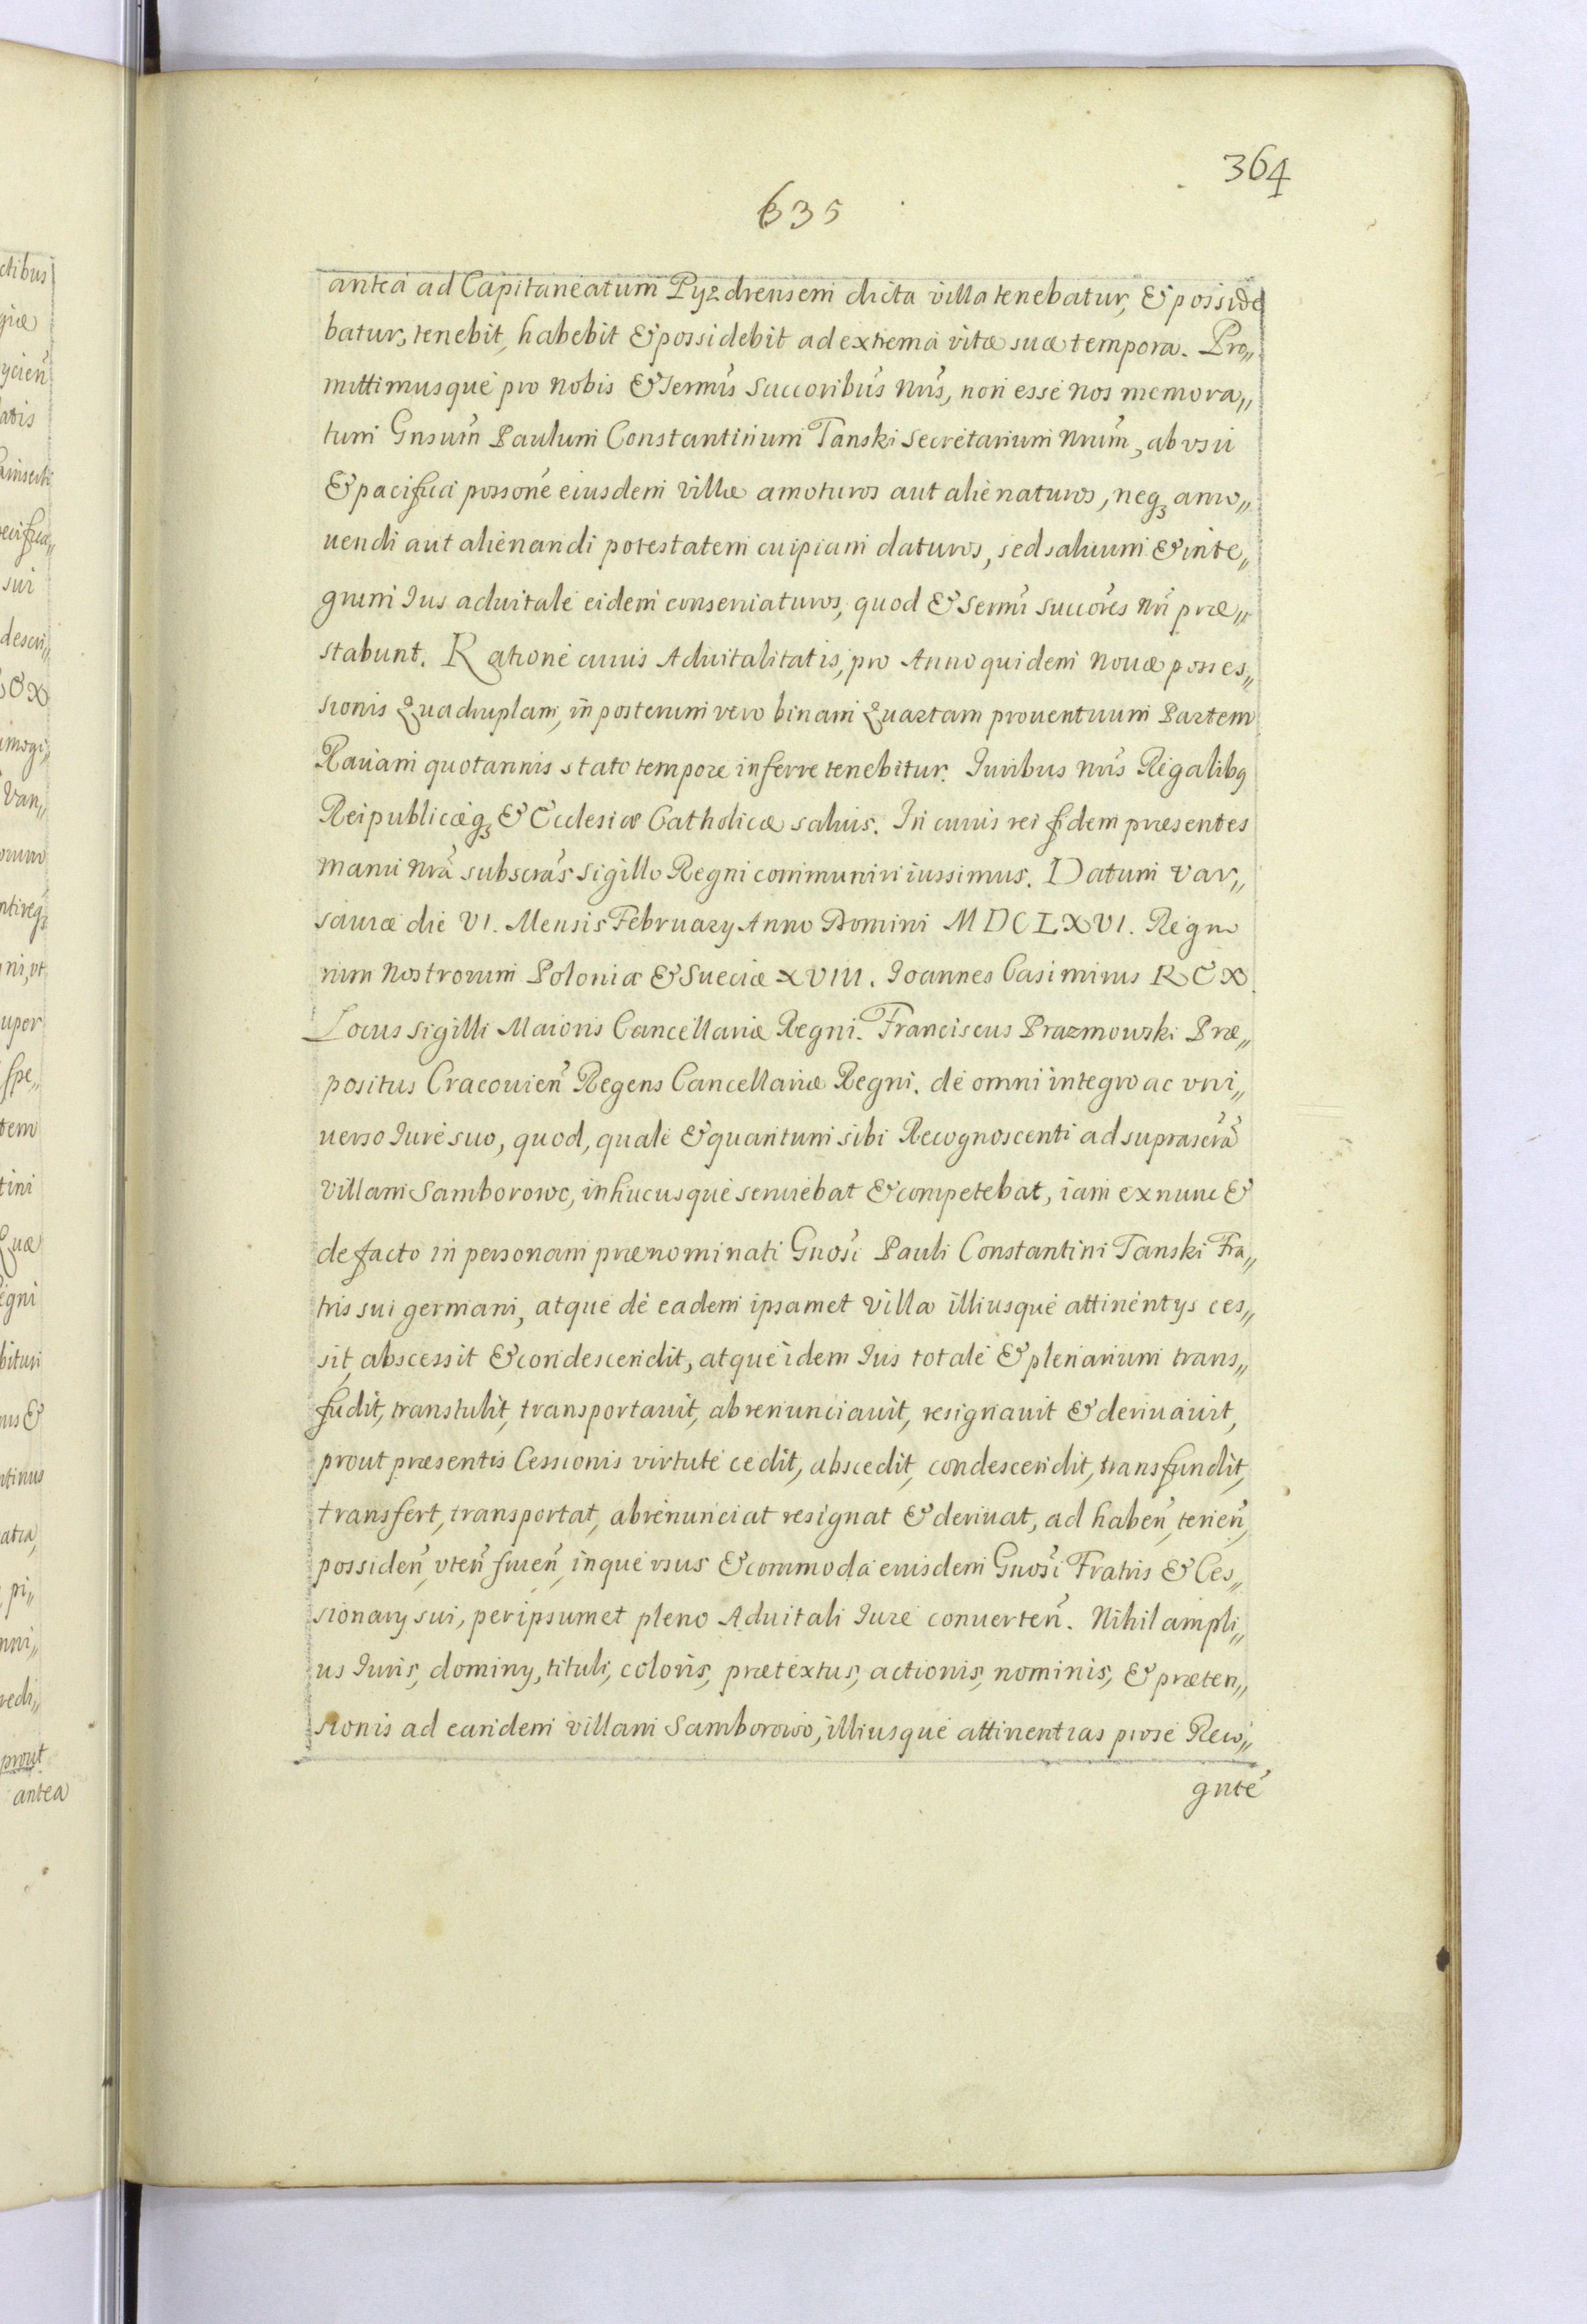 364
635
antea ad Capitaneatum Pyzdrensem dicta villa tenebatur, & posside
batur, tenebit, habebit & possidebit ad extrema vitæ suæ tempora. Pro„
mittimusque pro nobis & Sermis Succoribus Nris, non esse nos memora„
tum Gnsum Paulum Constantinum Tanski Secretarium Nrum, ab vsu
& pacifica possone eiusdem villæ amoturos aut alienaturos, neq3 amo„
uendi aut alienandi potestatem cuipiam daturos, sed saluum & inte„
grum Ius aduitale eidem conseruaturos, quod & Sermi succores Nri præ„
stabunt. Ratione cuius Aduitalitatis, pro Anno quidem Nouæ posses„
sionis Quadruplam, in posterum vero binam Quartam prouentuum Partem
Rauam quotannis stato tempore inferre tenebitur. Iuribus nris Regalibq
Reipublicæq3 & Ecclesiæ Catholicæ saluis. In cuius rei fidem præsentes
manu Nrã subscras sigillo Regni communiri iussimus. Datum Var„
sauiæ die VI. Mensis February Anno Domini MDCLXVI. Regno
rum Nostrorum Poloniæ & Sueciæ XVIII. Ioannes Casimirus REX
Locus sigilli Maioris Cancellariæ Regni. Franciscus Prazmowski Præ„
positus Cracouien̄ Regens Cancellariæ Regni. de omni integro ac vni„
uerso Iure suo, quod, quale & quantum sibi Recognoscenti ad suprascrã
Villam Samborowo, inhucusque seruiebat & competebat, iam ex nunc &
de facto in personam prænominati Gnosi Pauli Constantini Tanski Fra„
tris sui germani, atque de eadem ipsamet Villa illiusque attinentys ces„
sit, abscessit & condescendit, atque idem Ius totale & plenarium trans„
fudit, transtulit, transportauit, abrenunciauit, resignauit & deriuauit,
prout præsentis Cessionis virtute cedit, abscedit, condescendit, transfundit,
transfert, transportat, abrenunciat resignat & deriuat, ad haben̄, tenen̄,
possiden̄, vten̄ fruen̄, inque vsus & commoda eiusdem Gnosi Fratris & Ces„
sionary sui, per ipsumet pleno Aduitali Iure conuerten̄. Nihil ampli„
us Iuris, dominy, tituli, coloris, prætextus, actionis, nominis, & præten„
sionis ad eandem villam Samborowo, illiusque attinentias pro se Reco„
gnte